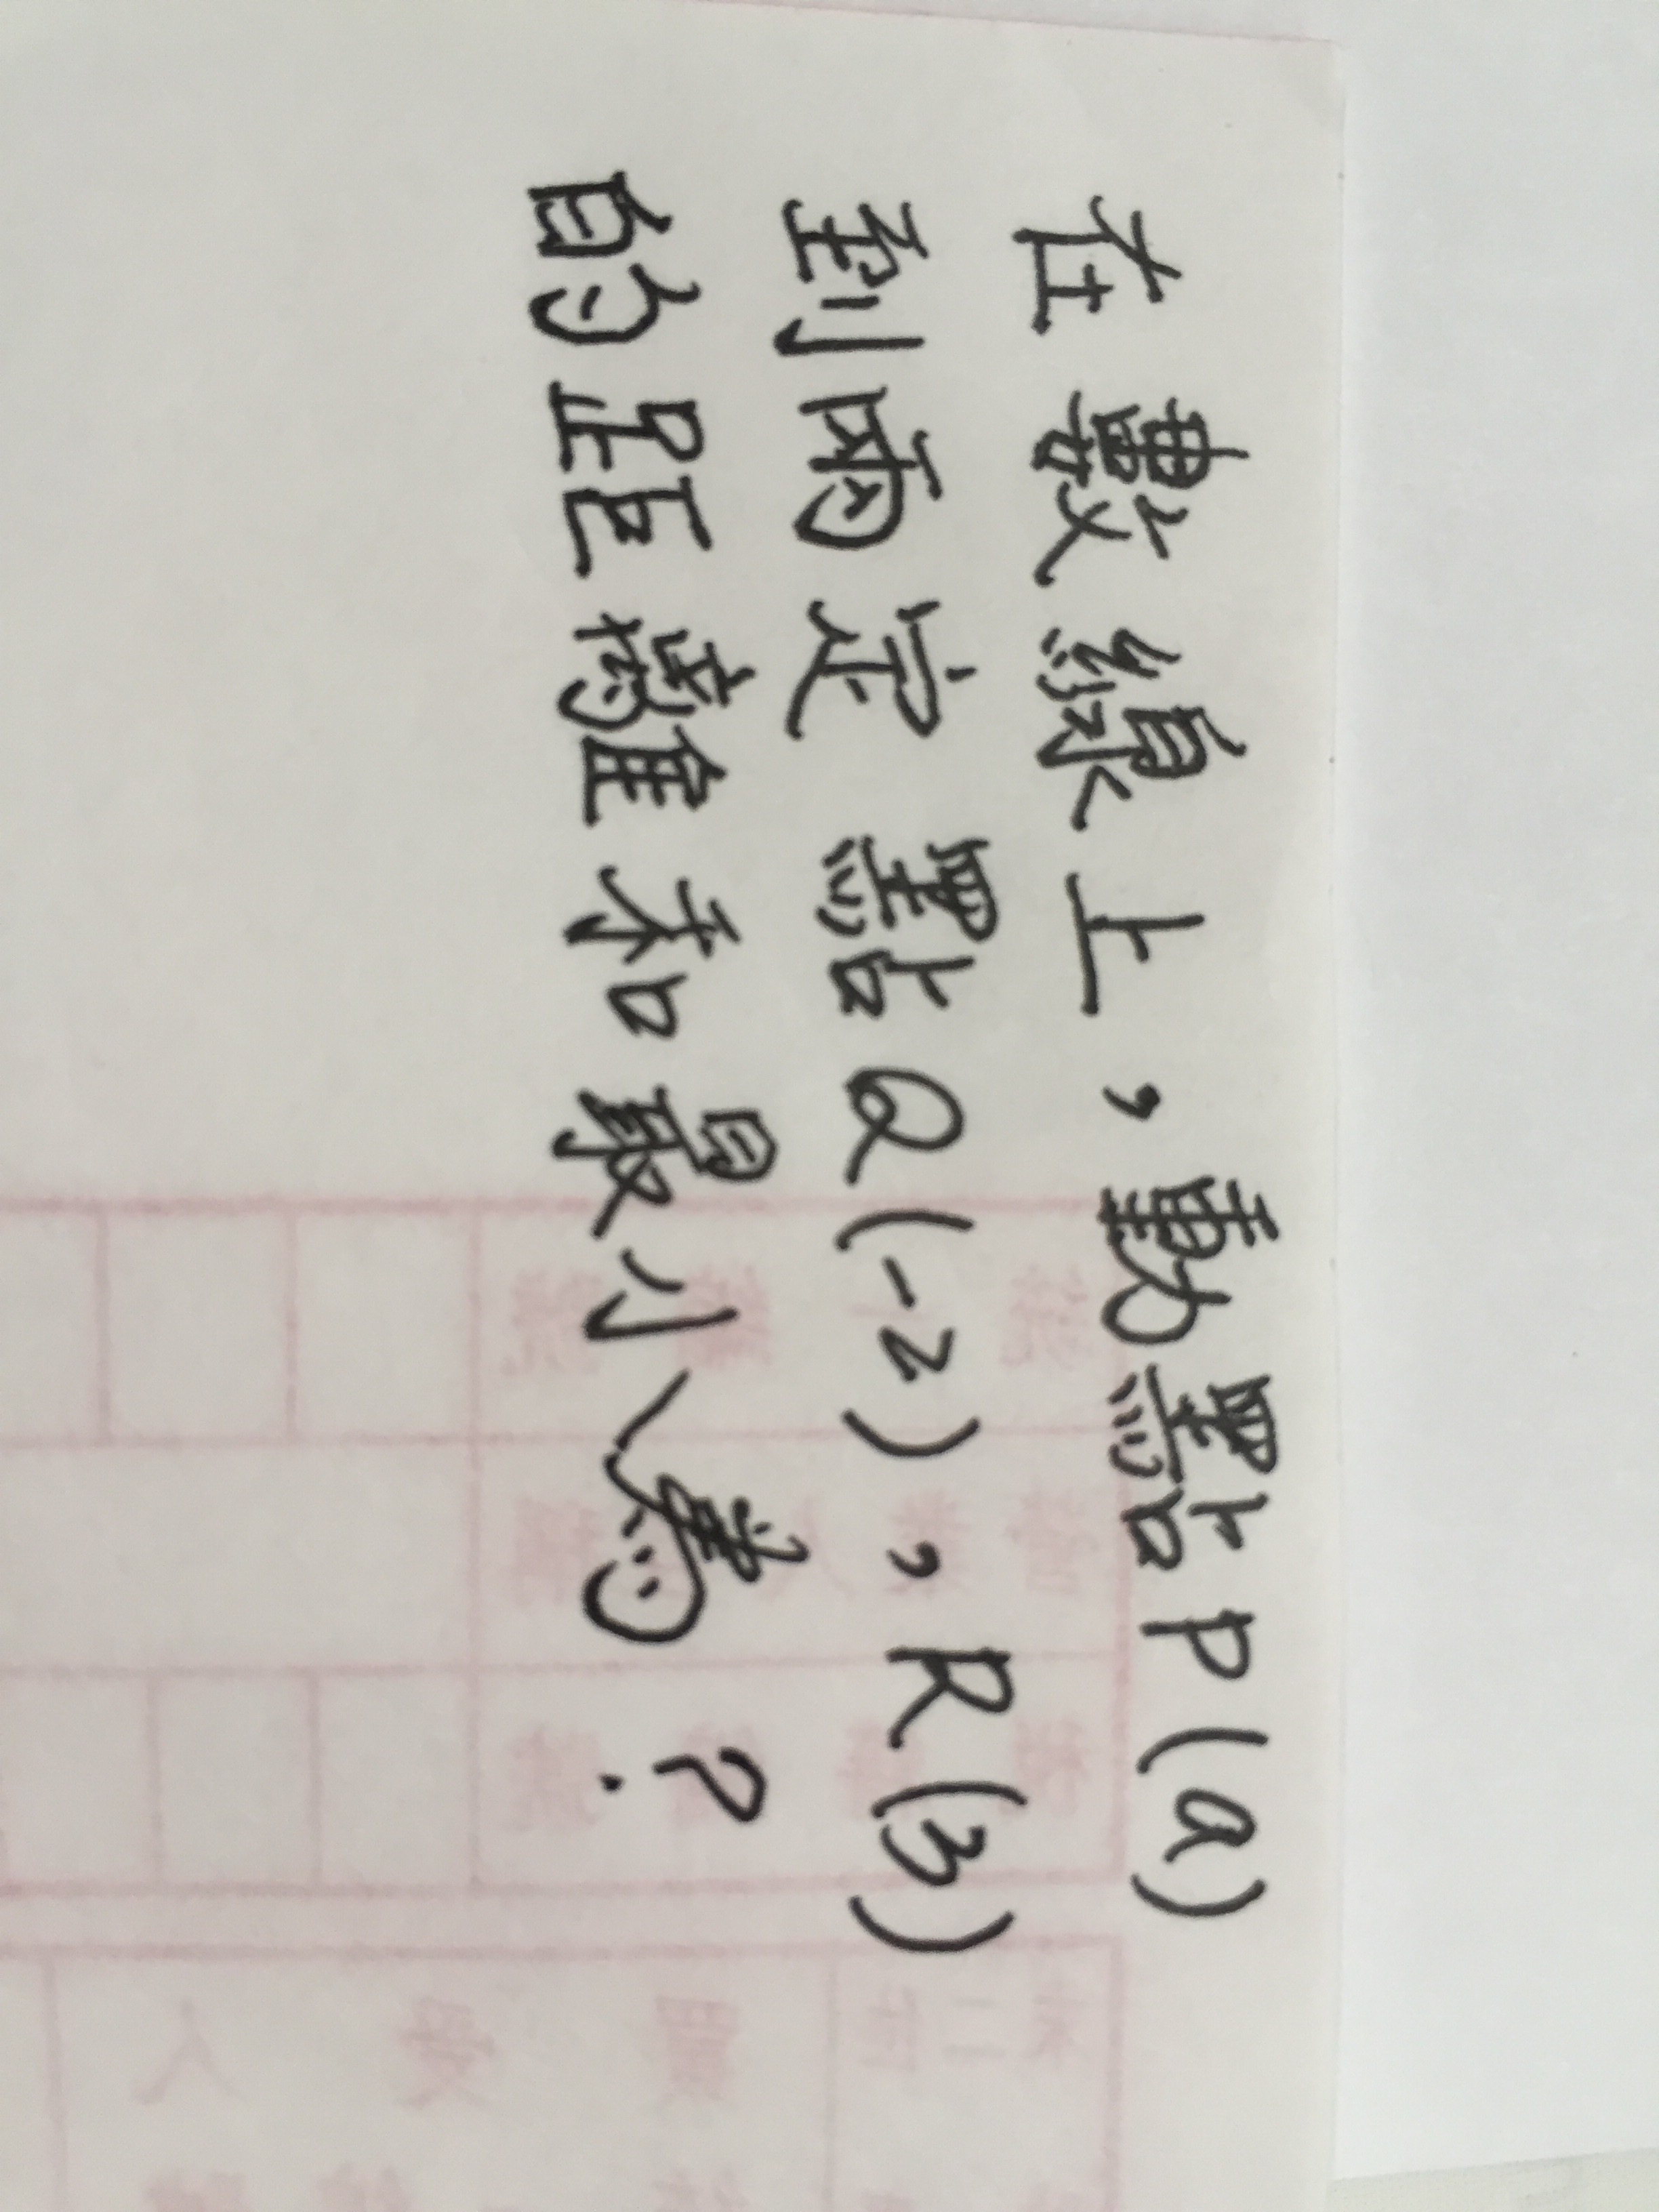 在數線上，動點P(a)
到兩定點Q(-2)，R(3)
的距離和最小為？